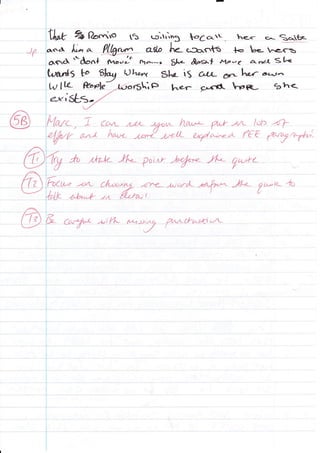 that Romio is willing to call her a Saite
sp and him a Pllgrom aslo he wants to be hers
and "dont move" She dosnt move and She
wants to Stay where She is all on her own
while People worship her and hope she
exists.
5B Marc, I can see you have put in lots of
effort and have some well explained PEE paragraphs.
T1 Try to state the point before the quote
T2 Focus on choosing one word from the quote to
talk about in detail
T3 Be careful with missing punctuation